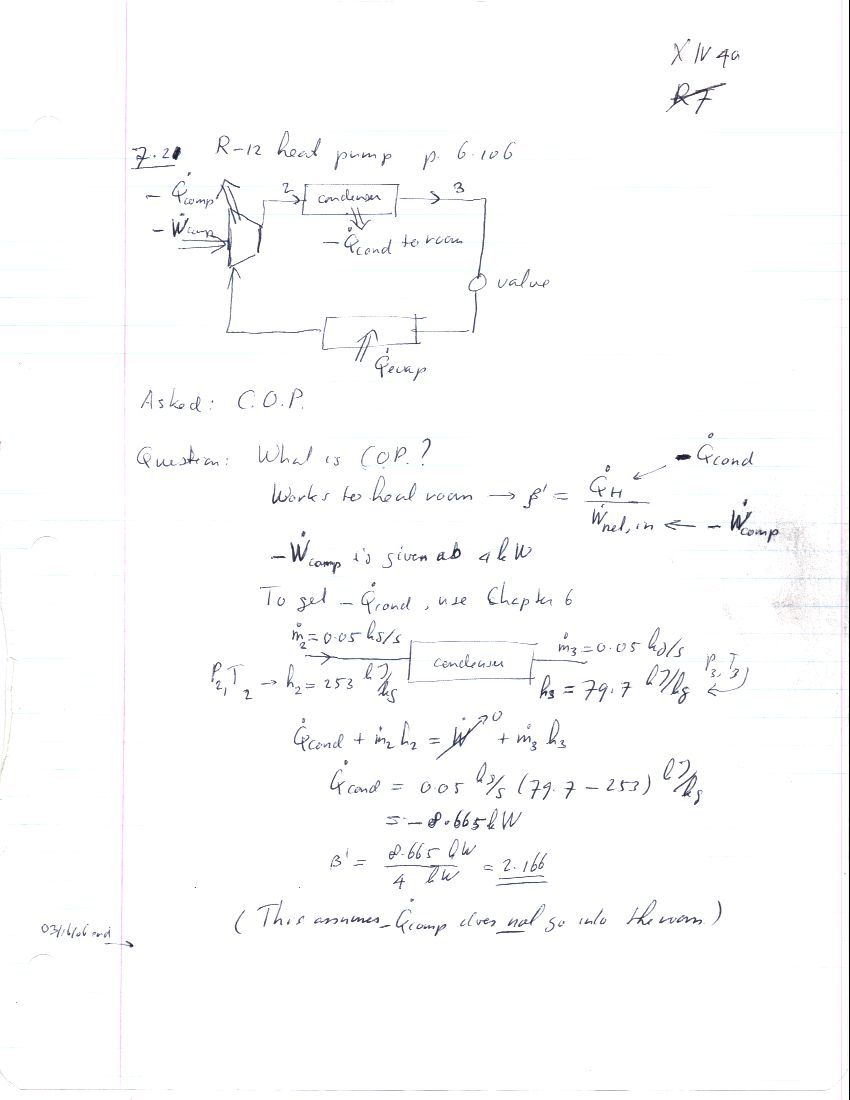 X IV 4a
RF
7.21 R-12 heat pump p. 6.106
- Q̇comp
2
condenser
3
- Ẇcomp
- Q̇cond to room
value
Q̇evap
Asked: C.O.P.
Question: What is COP.?
- Q̇cond
Works to heat room → β' = Q̇H / Ẇnet, in ← - Ẇcomp
- Ẇcomp is given as 4 kW
To get - Q̇cond, use Chapter 6
ṁ2 = 0.05 kg/s
condenser
ṁ3 = 0.05 kg/s
P2, T2 → h2 = 253 kJ/kg
h3 = 79.7 kJ/kg
P3, T3
Q̇cond + ṁ2 h2 = Ẇ 0 + ṁ3 h3
Q̇cond = 0.05 kg/s (79.7 - 253) kJ/kg
= - 8.665 kW
β' = 8.665 kW / 4 kW = 2.166
(This assumes - Q̇comp does not go into the room)
03/16/06 end